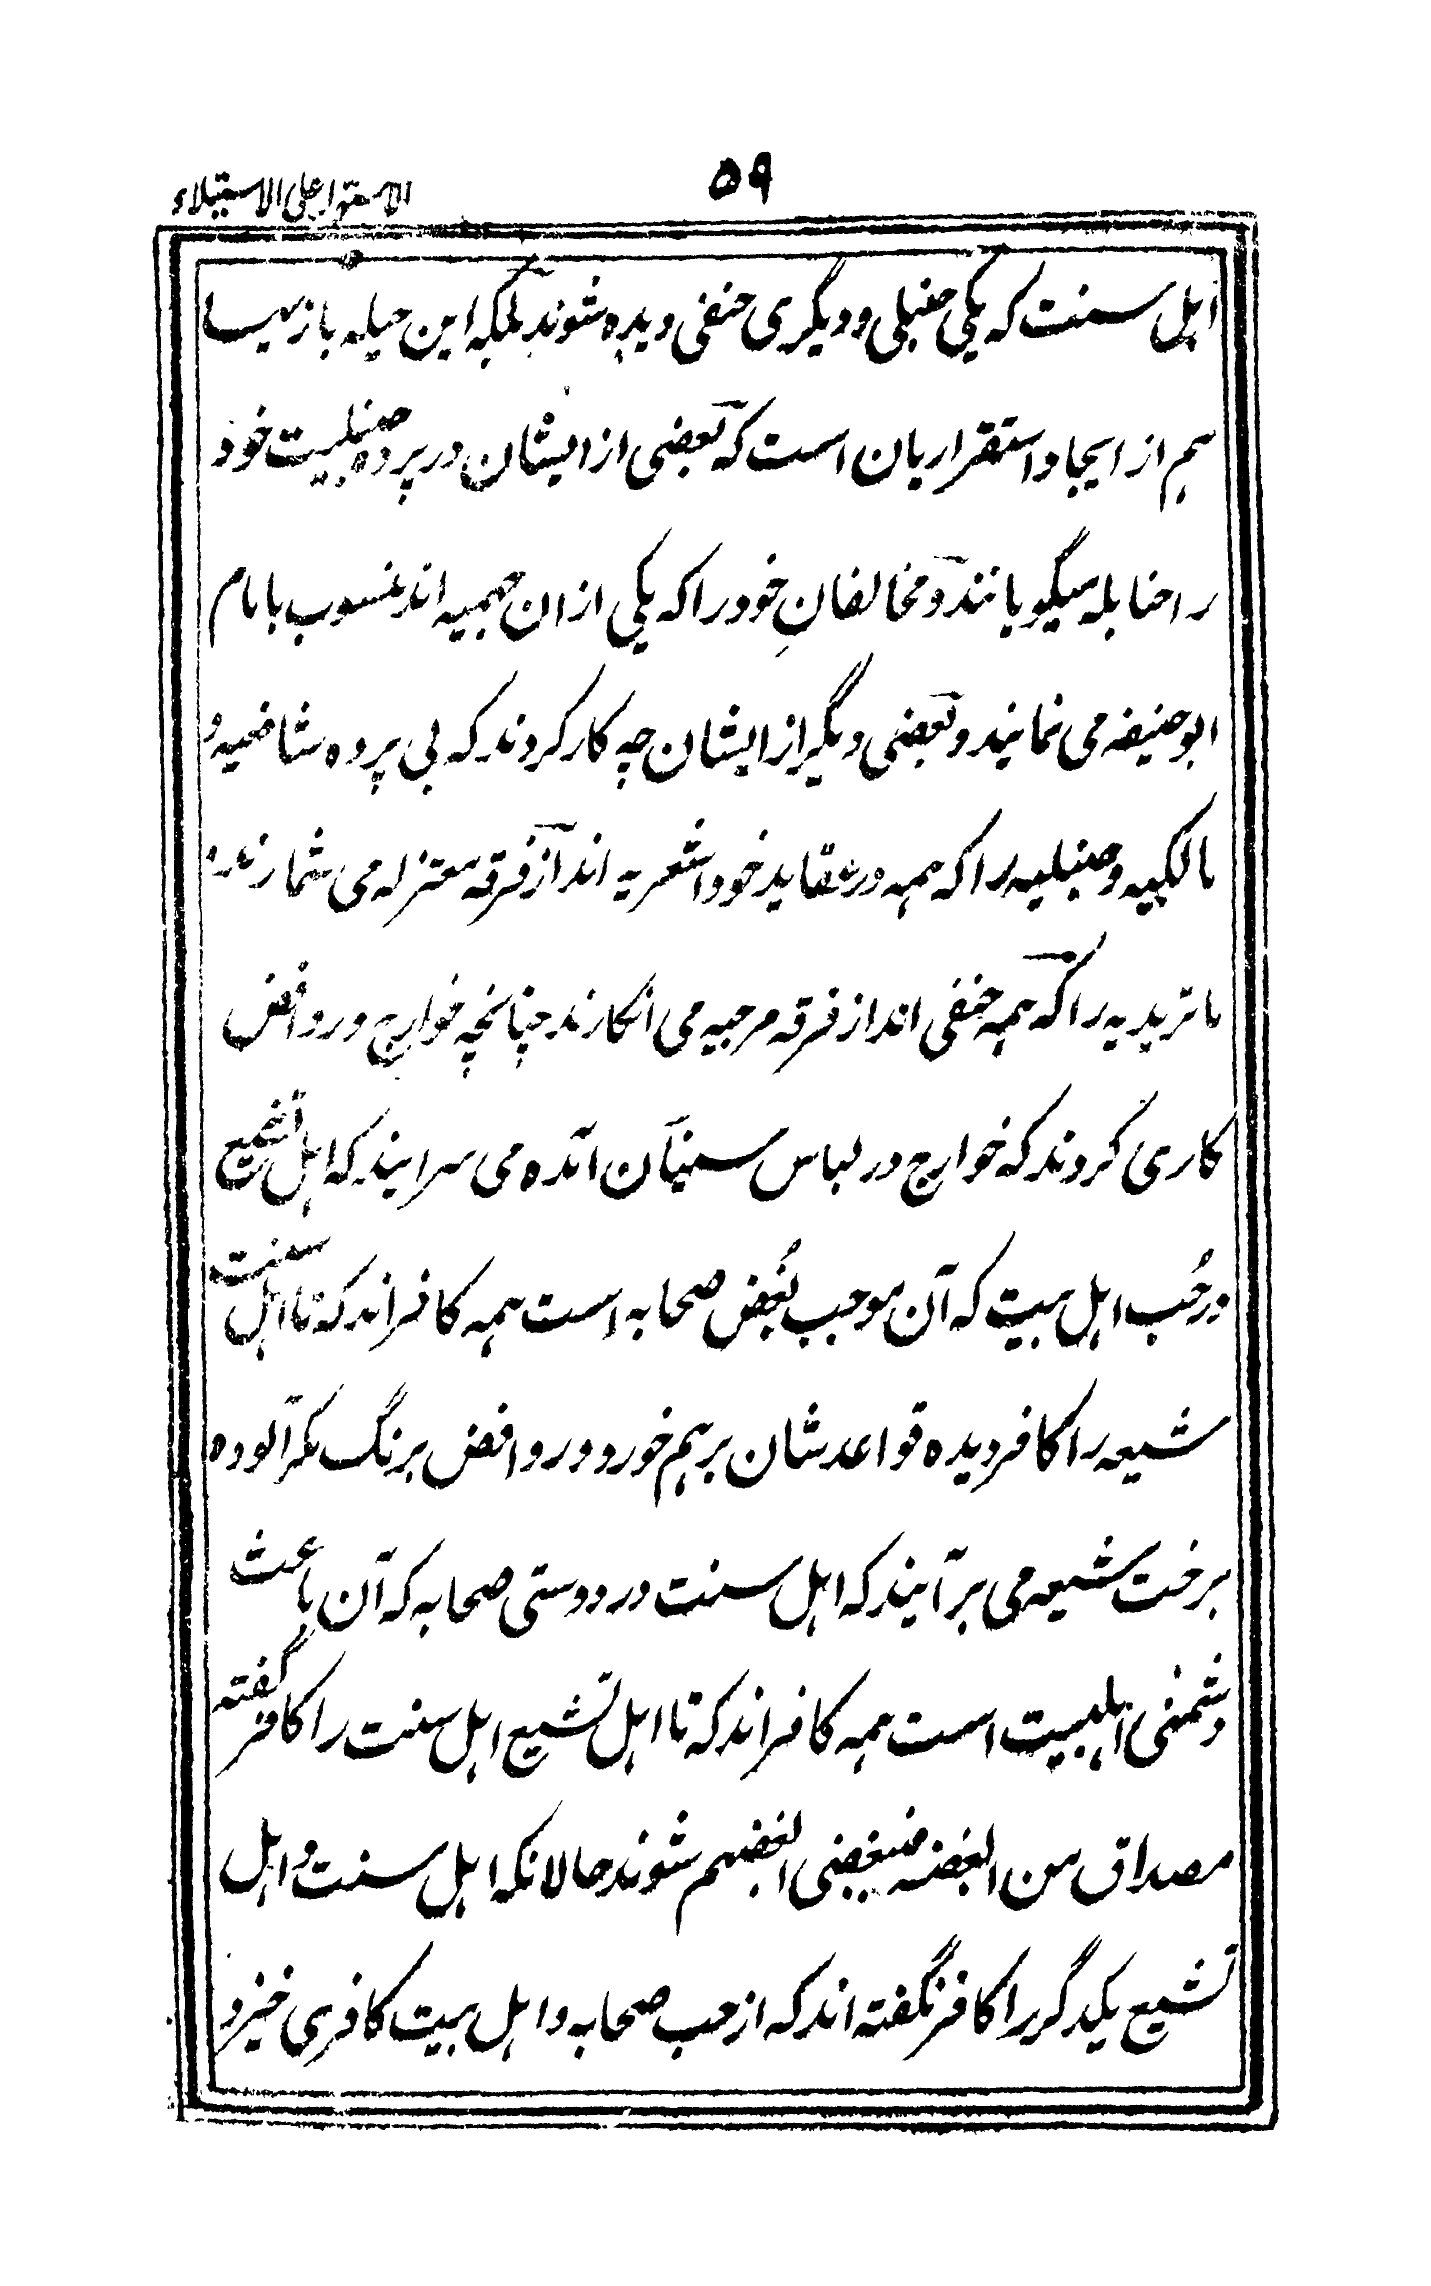 ۵۹
الاستوا علی الاستیلاء
اہل سنت کہ یکی حنبلی و دیگری حنفی دیدہ شوند بلکہ این حیلہ بازیہا
ہم از ایجاد استقراریان است کہ بعضی از ایشان در پردہ حنبلیت خود
را حنابلہ میگویانند و مخالفانِ خود را کہ یکی از ان جہمیہ اند منسوب بامام
ابو حنیفہ می نمایند و بعضی دیگر از ایشان چہ کار کردند کہ بی پردہ شافعیہ و
مالکیہ و حنبلیہ را کہ ہمہ در عقاید خود اشعریہ اند از فرقہ معتزلہ می شمارند و
ماتریدیہ را کہ ہمہ حنفی اند از فرقہ مرجیہ می انگارند چنانچہ خوارج و روافض
کاری کردند کہ خوارج در لباس سنیان آمدہ می سرایند کہ اہل تشیع
در حُب اہل بیت کہ آن موجب بُغض صحابہ است ہمہ کافر اند کہ تا اہل سنت
شیعہ را کافر دیدہ قواعد شان برہم خورد و روافض برنگ مکر آلودہ
برخت شیعہ می برآیند کہ اہل سنت در دوستی صحابہ کہ آن باعث
دشمنی اہلبیت است ہمہ کافر اند کہ تا اہل تشیع اہل سنت را کافر گفتہ
مصداق من ابغضہ فببغضی ابغضہم شوند حالانکہ اہل سنت و اہل
تشیع یکدگر را کافر نگفتہ اند کہ از حب صحابہ و اہل بیت کافری خیزد